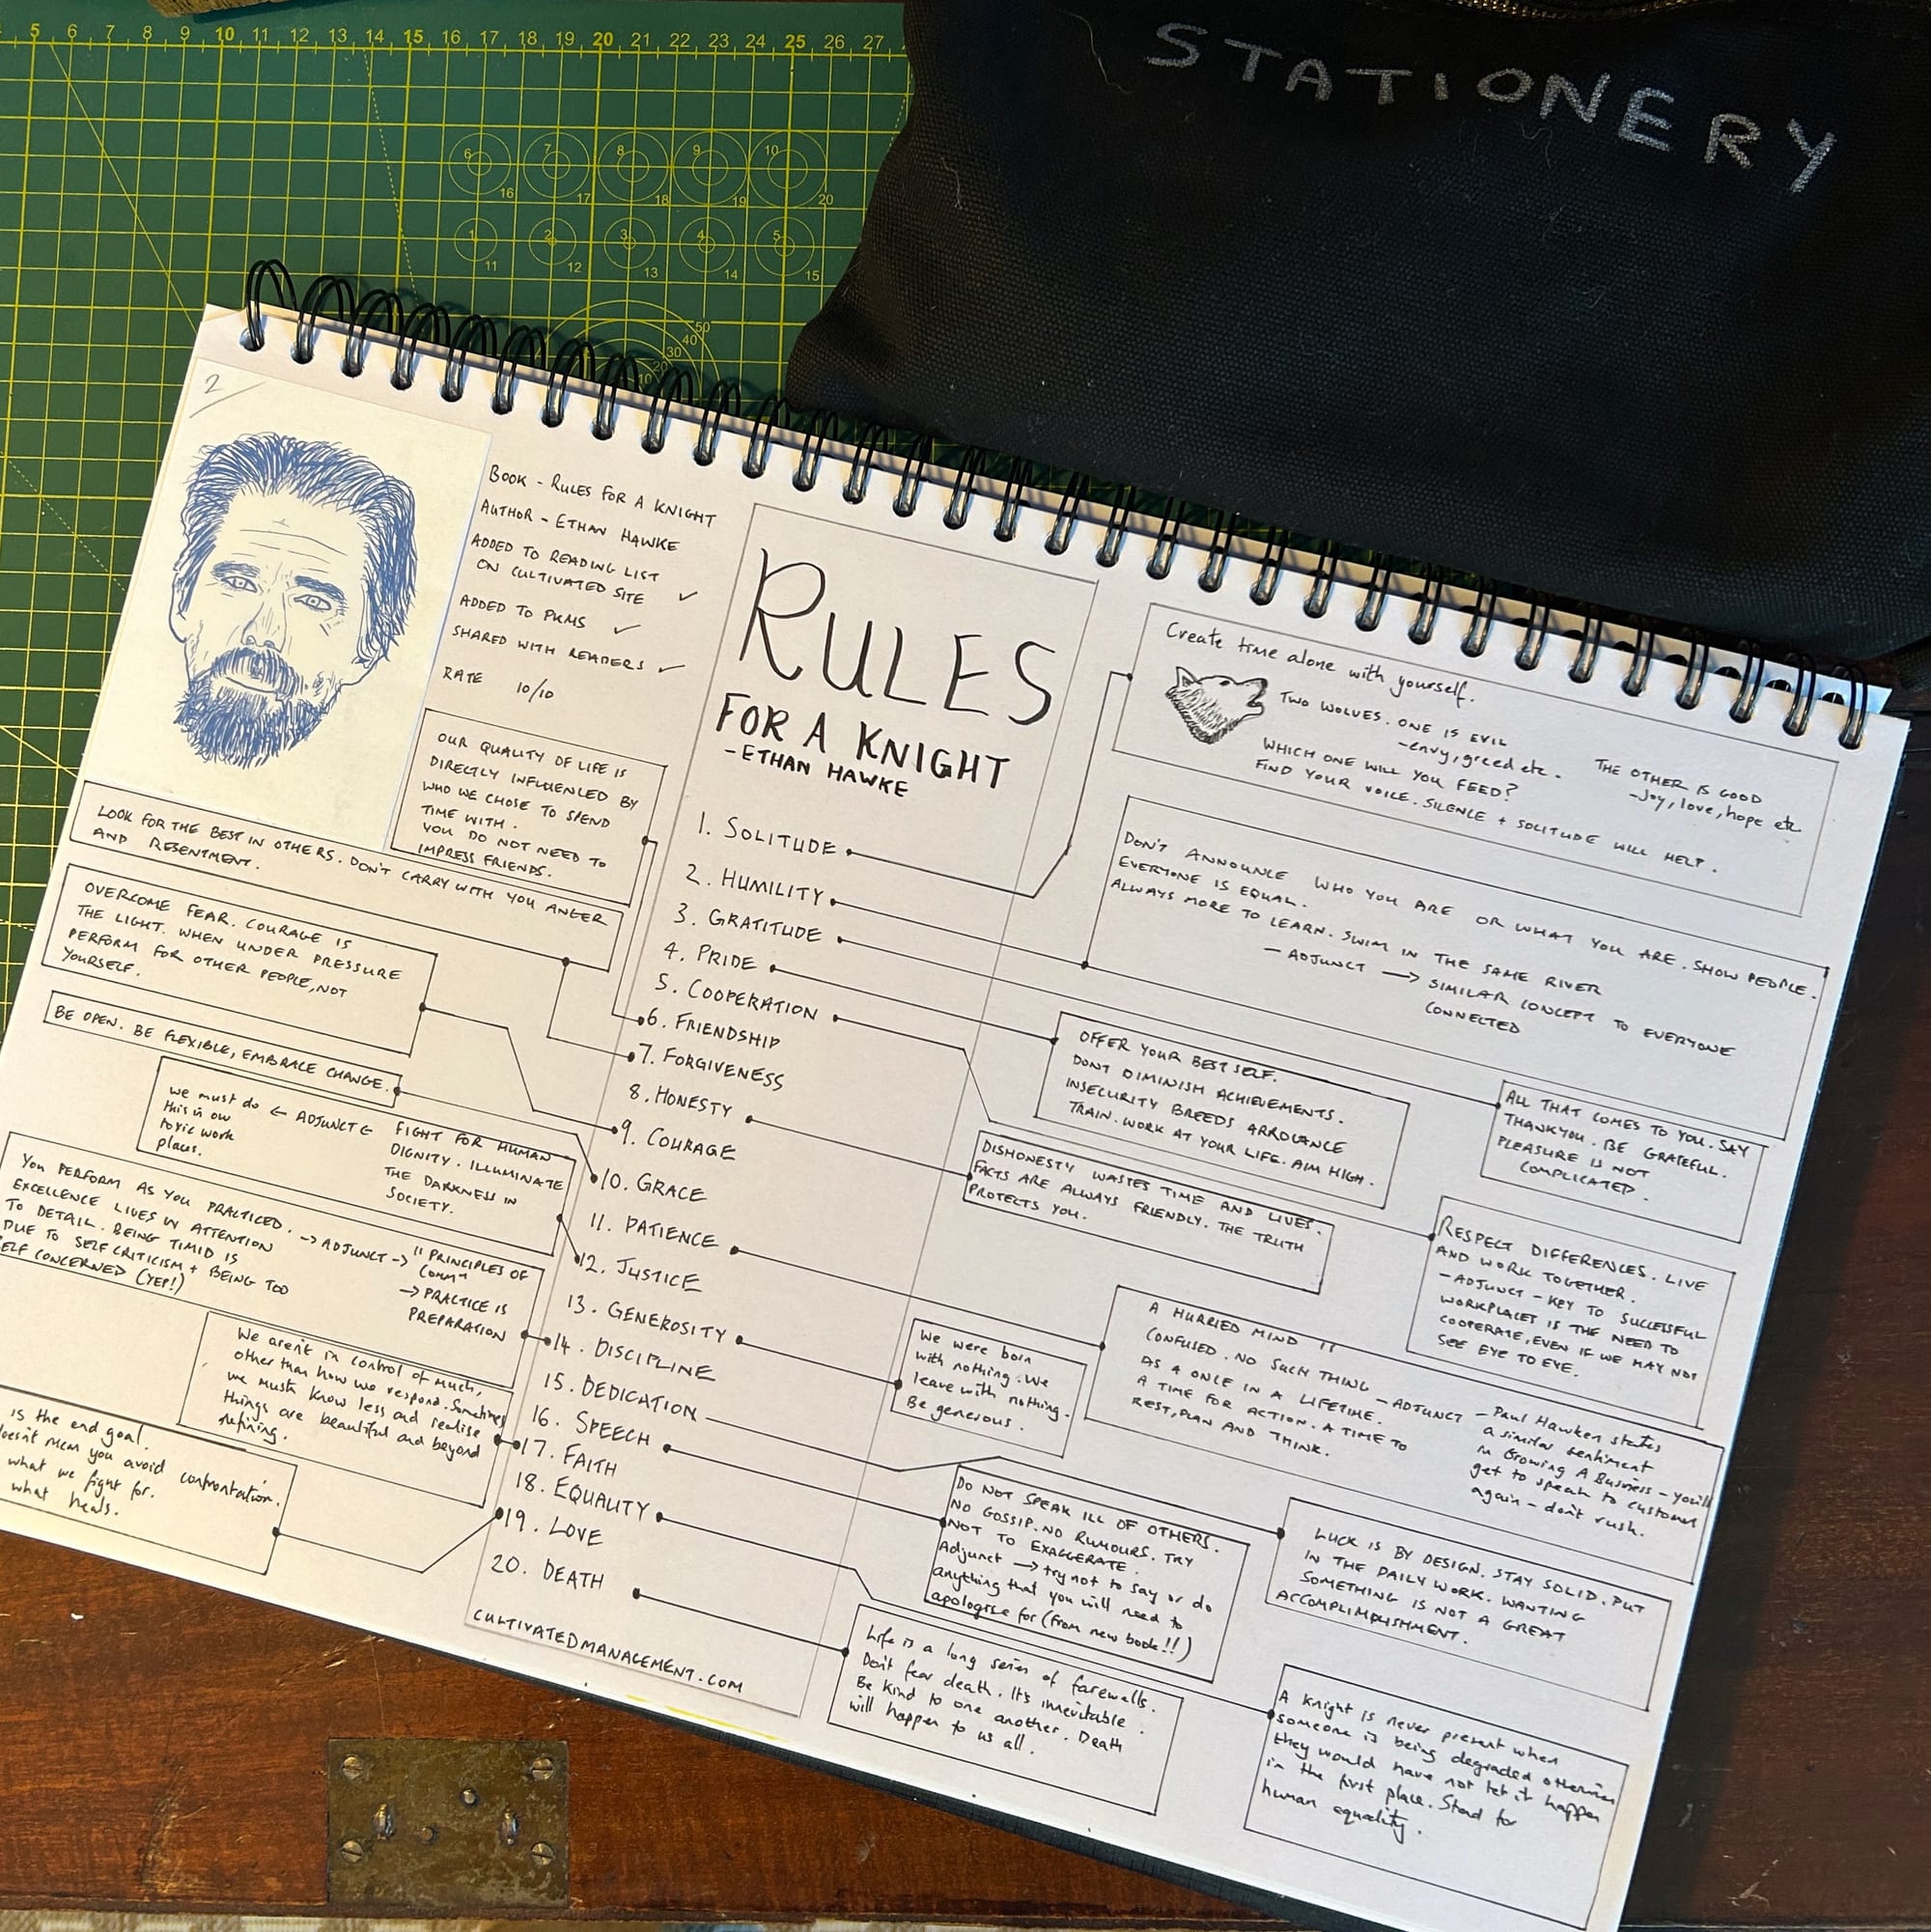 STATIONERY
5 6 7 8 9 10 11 12 13 14 15 16 17 18 19 20 21 22 23 24 25 26 27
6 7 8 9 10
16 17 18 19 20
1 2 3 4 5
11 12 13 14 15
50
40
30
20
10
2
BOOK - RULES FOR A KNIGHT
AUTHOR - ETHAN HAWKE
ADDED TO READING LIST
ON CULTIVATED SITE ✓
ADDED TO PKMS ✓
SHARED WITH READERS ✓
RATE 10/10
OUR QUALITY OF LIFE IS
DIRECTLY INFLUENCED BY
WHO WE CHOSE TO SPEND
TIME WITH.
YOU DO NOT NEED TO
IMPRESS FRIENDS.
LOOK FOR THE BEST IN OTHERS. DON'T CARRY WITH YOU ANGER
AND RESENTMENT.
OVERCOME FEAR. COURAGE IS
THE LIGHT. WHEN UNDER PRESSURE
PERFORM FOR OTHER PEOPLE, NOT
YOURSELF.
BE OPEN. BE FLEXIBLE, EMBRACE CHANGE.
we must do ← ADJUNCT ←
this in our
toxic work
places.
FIGHT FOR HUMAN
DIGNITY. ILLUMINATE
THE DARKNESS IN
SOCIETY.
YOU PERFORM AS YOU PRACTICED.
EXCELLENCE LIVES IN ATTENTION
TO DETAIL. BEING TIMID IS
DUE TO SELF CRITICISM + BEING TOO
SELF CONCERNED (YEP!)
→ ADJUNCT → "PRINCIPLES OF
COMMⁿ
→ PRACTICE IS
PREPARATION
We aren't in control of much,
other than how we respond. Sometimes
we must know less and realise
things are beautiful and beyond
refining.
is the end goal.
doesn't mean you avoid confrontation.
what we fight for.
what heals.
RULES
FOR A KNIGHT
- ETHAN HAWKE
1. SOLITUDE
2. HUMILITY
3. GRATITUDE
4. PRIDE
5. COOPERATION
6. FRIENDSHIP
7. FORGIVENESS
8. HONESTY
9. COURAGE
10. GRACE
11. PATIENCE
12. JUSTICE
13. GENEROSITY
14. DISCIPLINE
15. DEDICATION
16. SPEECH
17. FAITH
18. EQUALITY
19. LOVE
20. DEATH
CULTIVATEDMANAGEMENT.COM
Create time alone with yourself.
TWO WOLVES. ONE IS EVIL
- envy, greed etc.
THE OTHER IS GOOD
- Joy, love, hope etc.
WHICH ONE WILL YOU FEED?
FIND YOUR VOICE. SILENCE + SOLITUDE WILL HELP.
DON'T ANNOUNCE WHO YOU ARE OR WHAT YOU ARE. SHOW PEOPLE.
EVERYONE IS EQUAL.
ALWAYS MORE TO LEARN. SWIM IN THE SAME RIVER
- ADJUNCT → SIMILAR CONCEPT TO EVERYONE
CONNECTED
OFFER YOUR BEST SELF.
DONT DIMINISH ACHIEVEMENTS.
INSECURITY BREEDS ARROGANCE
TRAIN. WORK AT YOUR LIFE. AIM HIGH.
ALL THAT COMES TO YOU. SAY
THANKYOU. BE GRATEFUL.
PLEASURE IS NOT
COMPLICATED.
DISHONESTY WASTES TIME AND LIVES.
FACTS ARE ALWAYS FRIENDLY. THE TRUTH
PROTECTS YOU.
RESPECT DIFFERENCES. LIVE
AND WORK TOGETHER.
- ADJUNCT - KEY TO SUCCESSFUL
WORKPLACES IS THE NEED TO
COOPERATE, EVEN IF WE MAY NOT
SEE EYE TO EYE.
A HURRIED MIND IS
CONFUSED. NO SUCH THING
AS A ONCE IN A LIFETIME.
A TIME FOR ACTION. A TIME TO
REST, PLAN AND THINK.
- ADJUNCT - Paul Hawken states
a similar sentiment
in Growing A Business - you'll
get to speak to customer
again - don't rush.
We were born
with nothing. We
leave with nothing.
Be generous.
DO NOT SPEAK ILL OF OTHERS.
NO GOSSIP. NO RUMOURS. TRY
NOT TO EXAGGERATE.
Adjunct → try not to say or do
anything that you will need to
apologise for (from new book!!)
LUCK IS BY DESIGN. STAY SOLID. PUT
IN THE DAILY WORK. WANTING
SOMETHING IS NOT A GREAT
ACCOMPLIMPLISHMENT.
Life is a long series of farewells.
Don't fear death. It's inevitable.
Be kind to one another. Death
will happen to us all.
A Knight is never present when
someone is being degraded otherwise
they would have not let it happen
in the first place. Stand for
human equality.